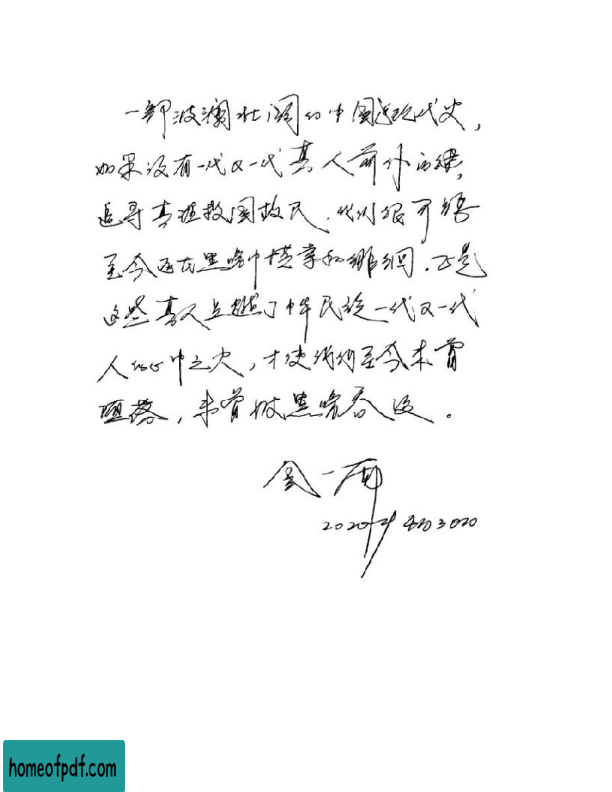 一部波澜壮阔的中国近现代史，
如果没有一代又一代真人前仆后继，
追寻真理救国救民，我们很可能
至今还在黑暗中摸索和徘徊。正是
这些真人点燃了中华民族一代又一代
人的心中之火，才使我们至今未曾
堕落，未曾被黑暗吞没。
金一南
2020年4月30日
homeofpdf.com